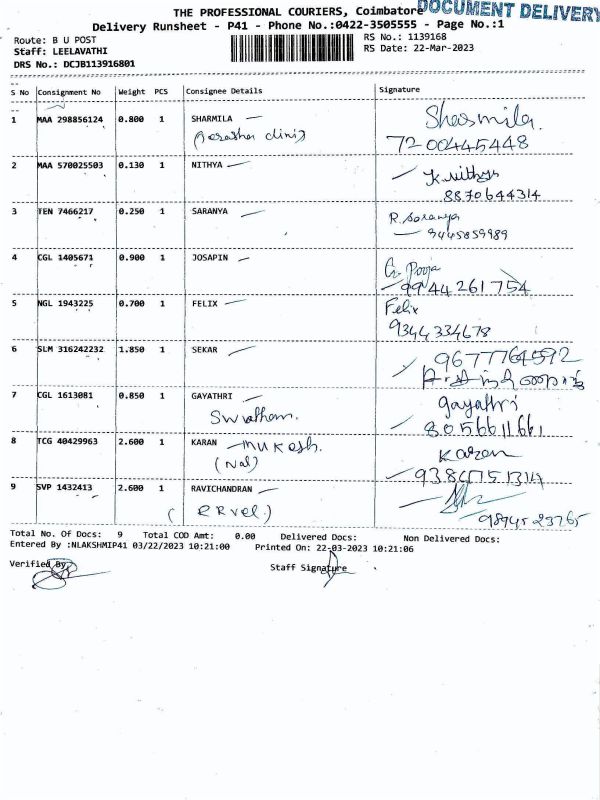 THE PROFESSIONAL COURIERS, Coimbatore DOCUMENT DELIVERY
Delivery Runsheet - P41 - Phone No.:0422-3505555 - Page No.:1
Route: B U POST RS No.: 1139168
Staff: LEELAVATHI RS Date: 22-Mar-2023
DRS No.: DCJB113916801
S No Consignment No Weight PCS Consignee Details Signature
1 MAA 298856124 0.800 1 SHARMILA Sharmila
7200445448
2 MAA 570025503 0.130 1 NITHYA K. Nithya
8870644314
3 TEN 7466217 0.250 1 SARANYA R. Saranya
9445859989
4 CGL 1405671 0.900 1 JOSAPIN G. Pooja
9944261754
5 NGL 1943225 0.700 1 FELIX Felix
9344334678
6 SLM 316242232 1.850 1 SEKAR 9677764592
7 CGL 1613081 0.850 1 GAYATHRI gayathri
Swatham. 8056611661
8 TCG 40429963 2.600 1 KARAN - MUKesh. Karan
9 SVP 1432413 2.600 1 RAVICHANDRAN
Total No. Of Docs: 9 Total COD Amt: 0.00 Delivered Docs: Non Delivered Docs:
Entered By :NLAKSHMIP41 03/22/2023 10:21:00 Printed On: 22-03-2023 10:21:06
Verified By Staff Signature